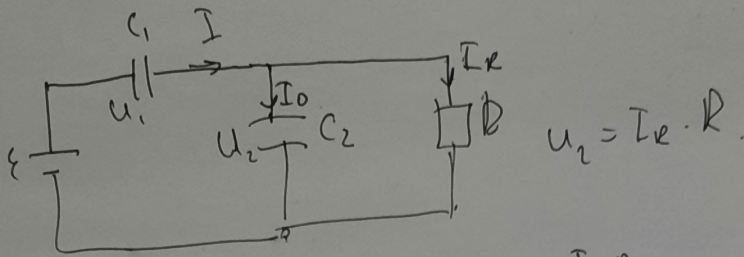 C₁ I
I_R
U₁ I₀
ε U₂ C₂ R U₂ = I_R · R.